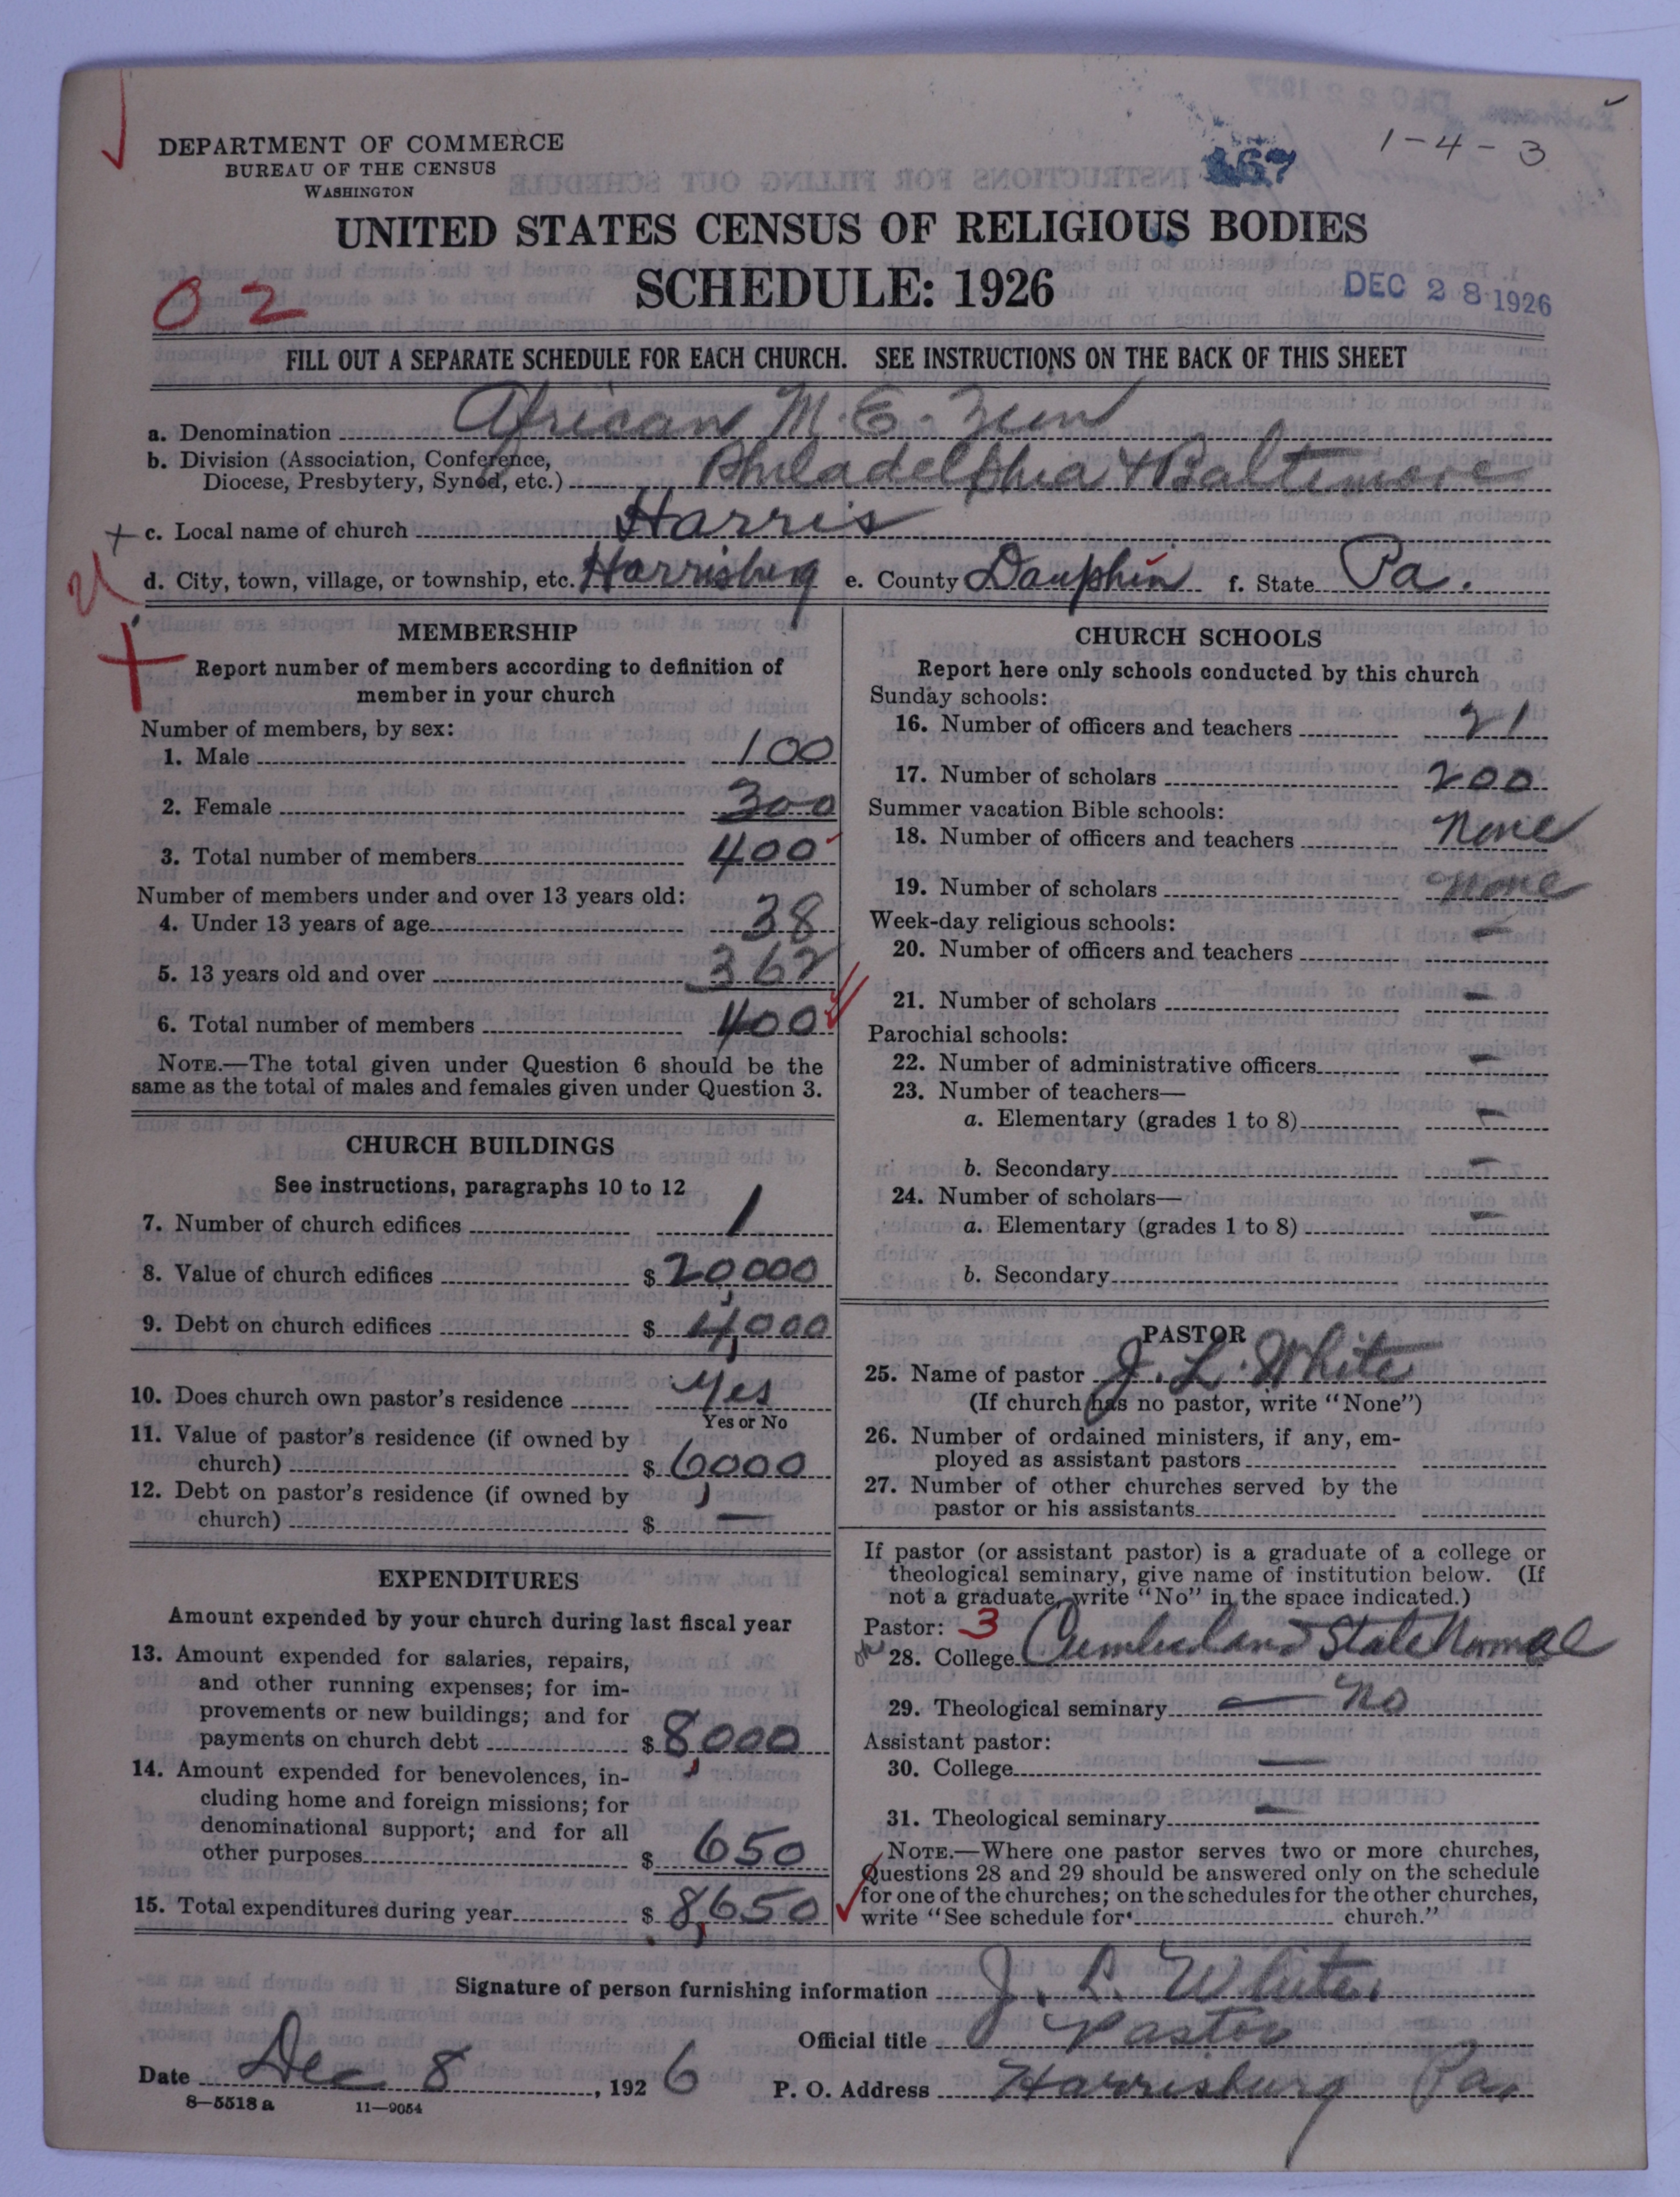 DEPARTMENT OF COMMERCE
BUREAU OF THE CENSUS
WASHINGTON
167
1-4-3
UNITED STATES CENSUS OF RELIGIOUS BODIES
SCHEDULE: 1926
02
DEC 28 1926
FILL OUT A SEPARATE SCHEDULE FOR EACH CHURCH. SEE INSTRUCTIONS ON THE BACK OF THIS SHEET
a. Denomination African M. E. Zion
b. Division (Association, Conference,
Diocese, Presbytery, Synod, etc.) Philadelphia & Baltimore
+ c. Local name of church Harris
d. City, town, village, or township, etc. Harrisburg e. County Dauphin f. State Pa.
MEMBERSHIP
Report number of members according to definition of
member in your church
Number of members, by sex:
1. Male 100
2. Female 300
3. Total number of members 400
Number of members under and over 13 years old:
4. Under 13 years of age 38
5. 13 years old and over 362
6. Total number of members 400
NOTE.—The total given under Question 6 should be the
same as the total of males and females given under Question 3.
CHURCH BUILDINGS
See instructions, paragraphs 10 to 12
7. Number of church edifices 1
8. Value of church edifices $ 20,000
9. Debt on church edifices $ 4,000
10. Does church own pastor's residence Yes
Yes or No
11. Value of pastor's residence (if owned by
church) $ 6000
12. Debt on pastor's residence (if owned by
church) $ —
EXPENDITURES
Amount expended by your church during last fiscal year
13. Amount expended for salaries, repairs,
and other running expenses; for im-
provements or new buildings; and for
payments on church debt $ 8,000
14. Amount expended for benevolences, in-
cluding home and foreign missions; for
denominational support; and for all
other purposes $ 650
15. Total expenditures during year $ 8,650
CHURCH SCHOOLS
Report here only schools conducted by this church
Sunday schools:
16. Number of officers and teachers 21
17. Number of scholars 200
Summer vacation Bible schools:
18. Number of officers and teachers None
19. Number of scholars None
Week-day religious schools:
20. Number of officers and teachers —
21. Number of scholars —
Parochial schools:
22. Number of administrative officers —
23. Number of teachers—
a. Elementary (grades 1 to 8) —
b. Secondary —
24. Number of scholars—
a. Elementary (grades 1 to 8) —
b. Secondary
PASTOR
25. Name of pastor J. L. White
(If church has no pastor, write "None")
26. Number of ordained ministers, if any, em-
ployed as assistant pastors
27. Number of other churches served by the
pastor or his assistants
If pastor (or assistant pastor) is a graduate of a college or
theological seminary, give name of institution below. (If
not a graduate, write "No" in the space indicated.)
Pastor: 3
28. College Cumberland State Normal
29. Theological seminary — No
Assistant pastor:
30. College —
31. Theological seminary —
NOTE.—Where one pastor serves two or more churches,
Questions 28 and 29 should be answered only on the schedule
for one of the churches; on the schedules for the other churches,
write "See schedule for church."
Signature of person furnishing information J. L. White
Official title Pastor
Date Dec 8, 1926 P. O. Address Harrisburg Pa.
8—5518 a 11—9054